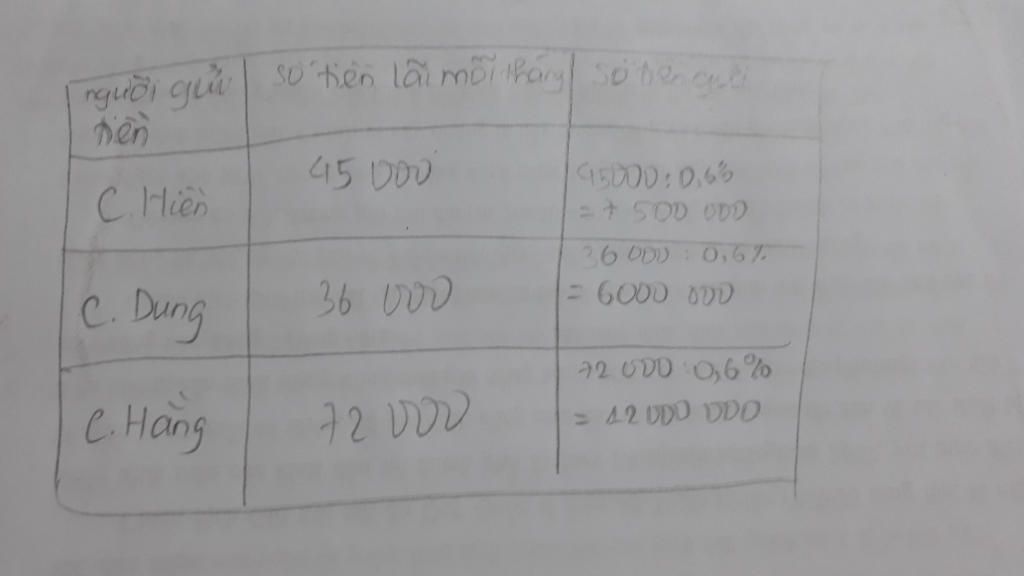 người gửi
tiền
số tiền lãi mỗi tháng
số tiền gửi
C. Hiền
45 000
45000 : 0,6%
= 7 500 000
C. Dung
36 000
36 000 : 0,6%
= 6000 000
C. Hằng
72 000
72 000 : 0,6%
= 12 000 000